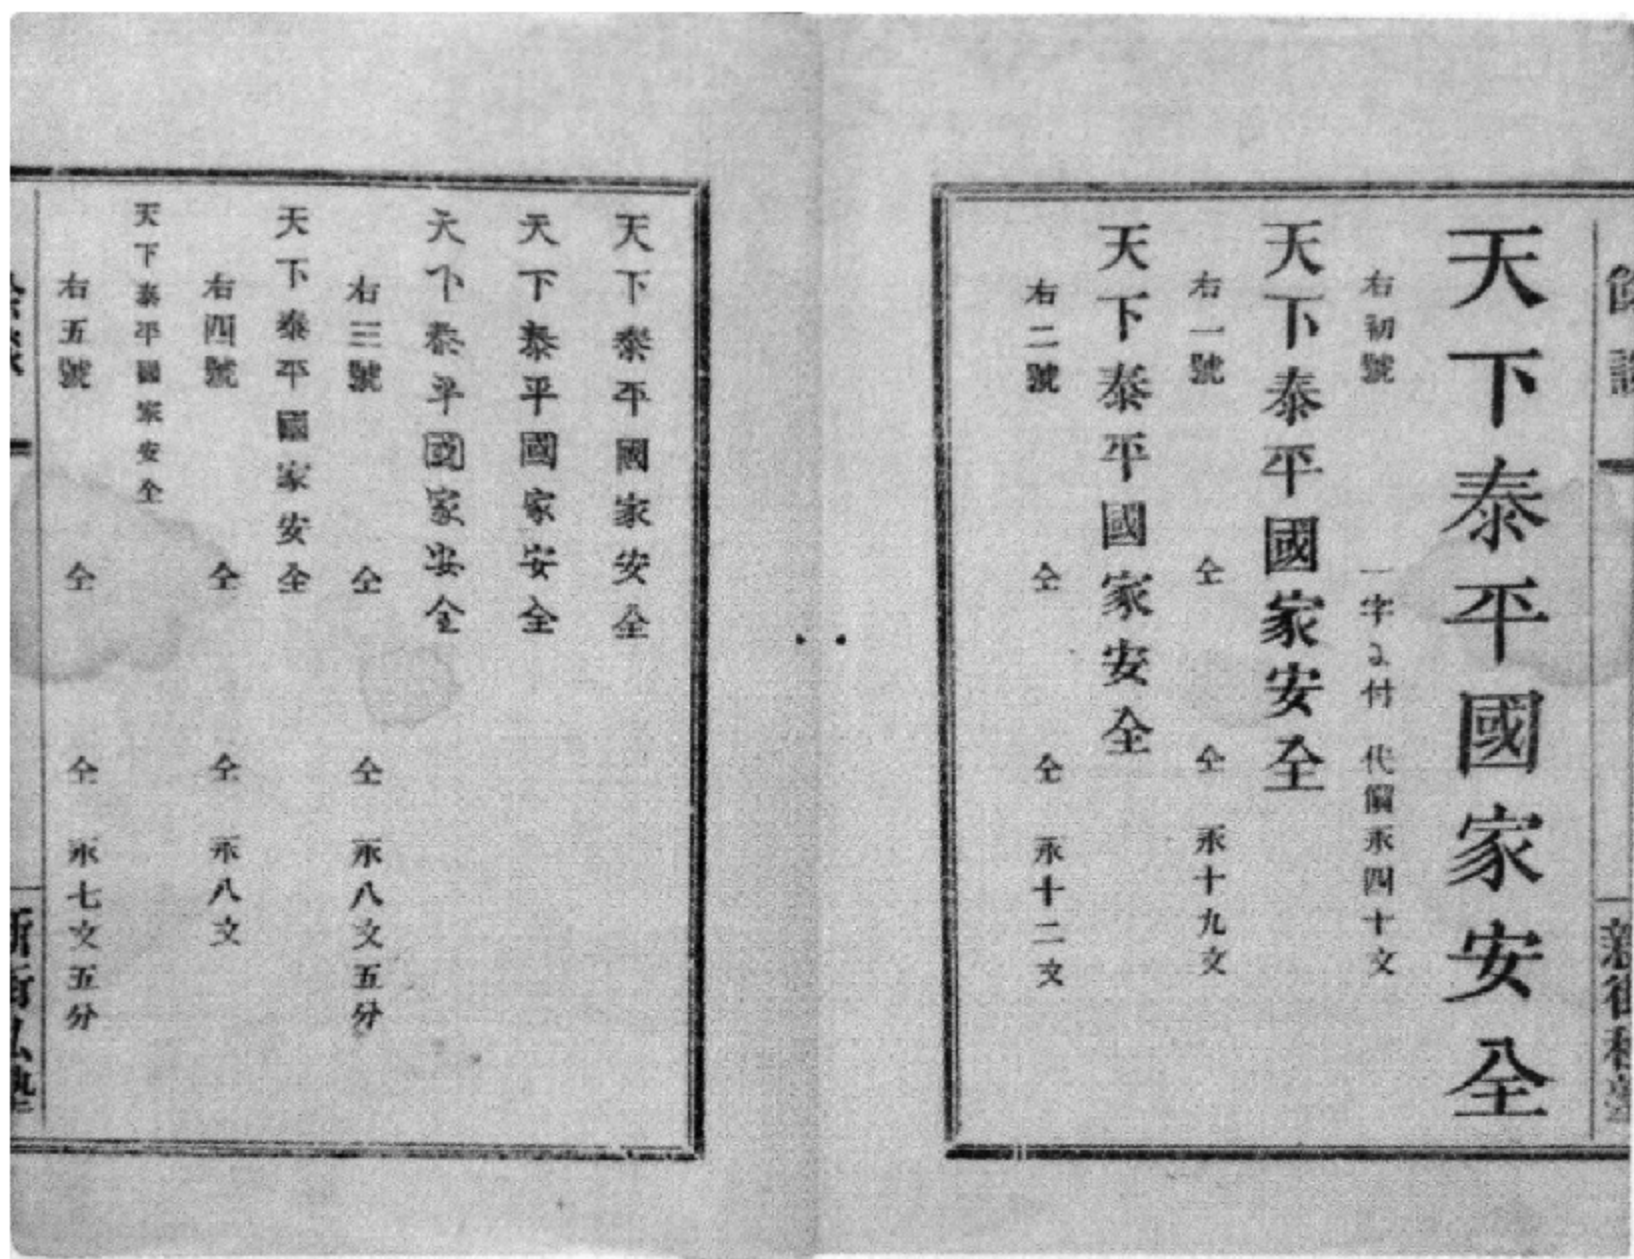 天下泰平國家安全
右初號 一字ニ付 代價永四十文
天下泰平國家安全
右一號 仝 仝 永十九文
天下泰平國家安全
右二號 仝 仝 永十二文
天下泰平國家安全
天下泰平國家安全
天下泰平國家安全
右三號 仝 仝 永八文五分
天下泰平國家安全
右四號 仝 仝 永八文
天下泰平國家安全
右五號 仝 仝 永七文五分